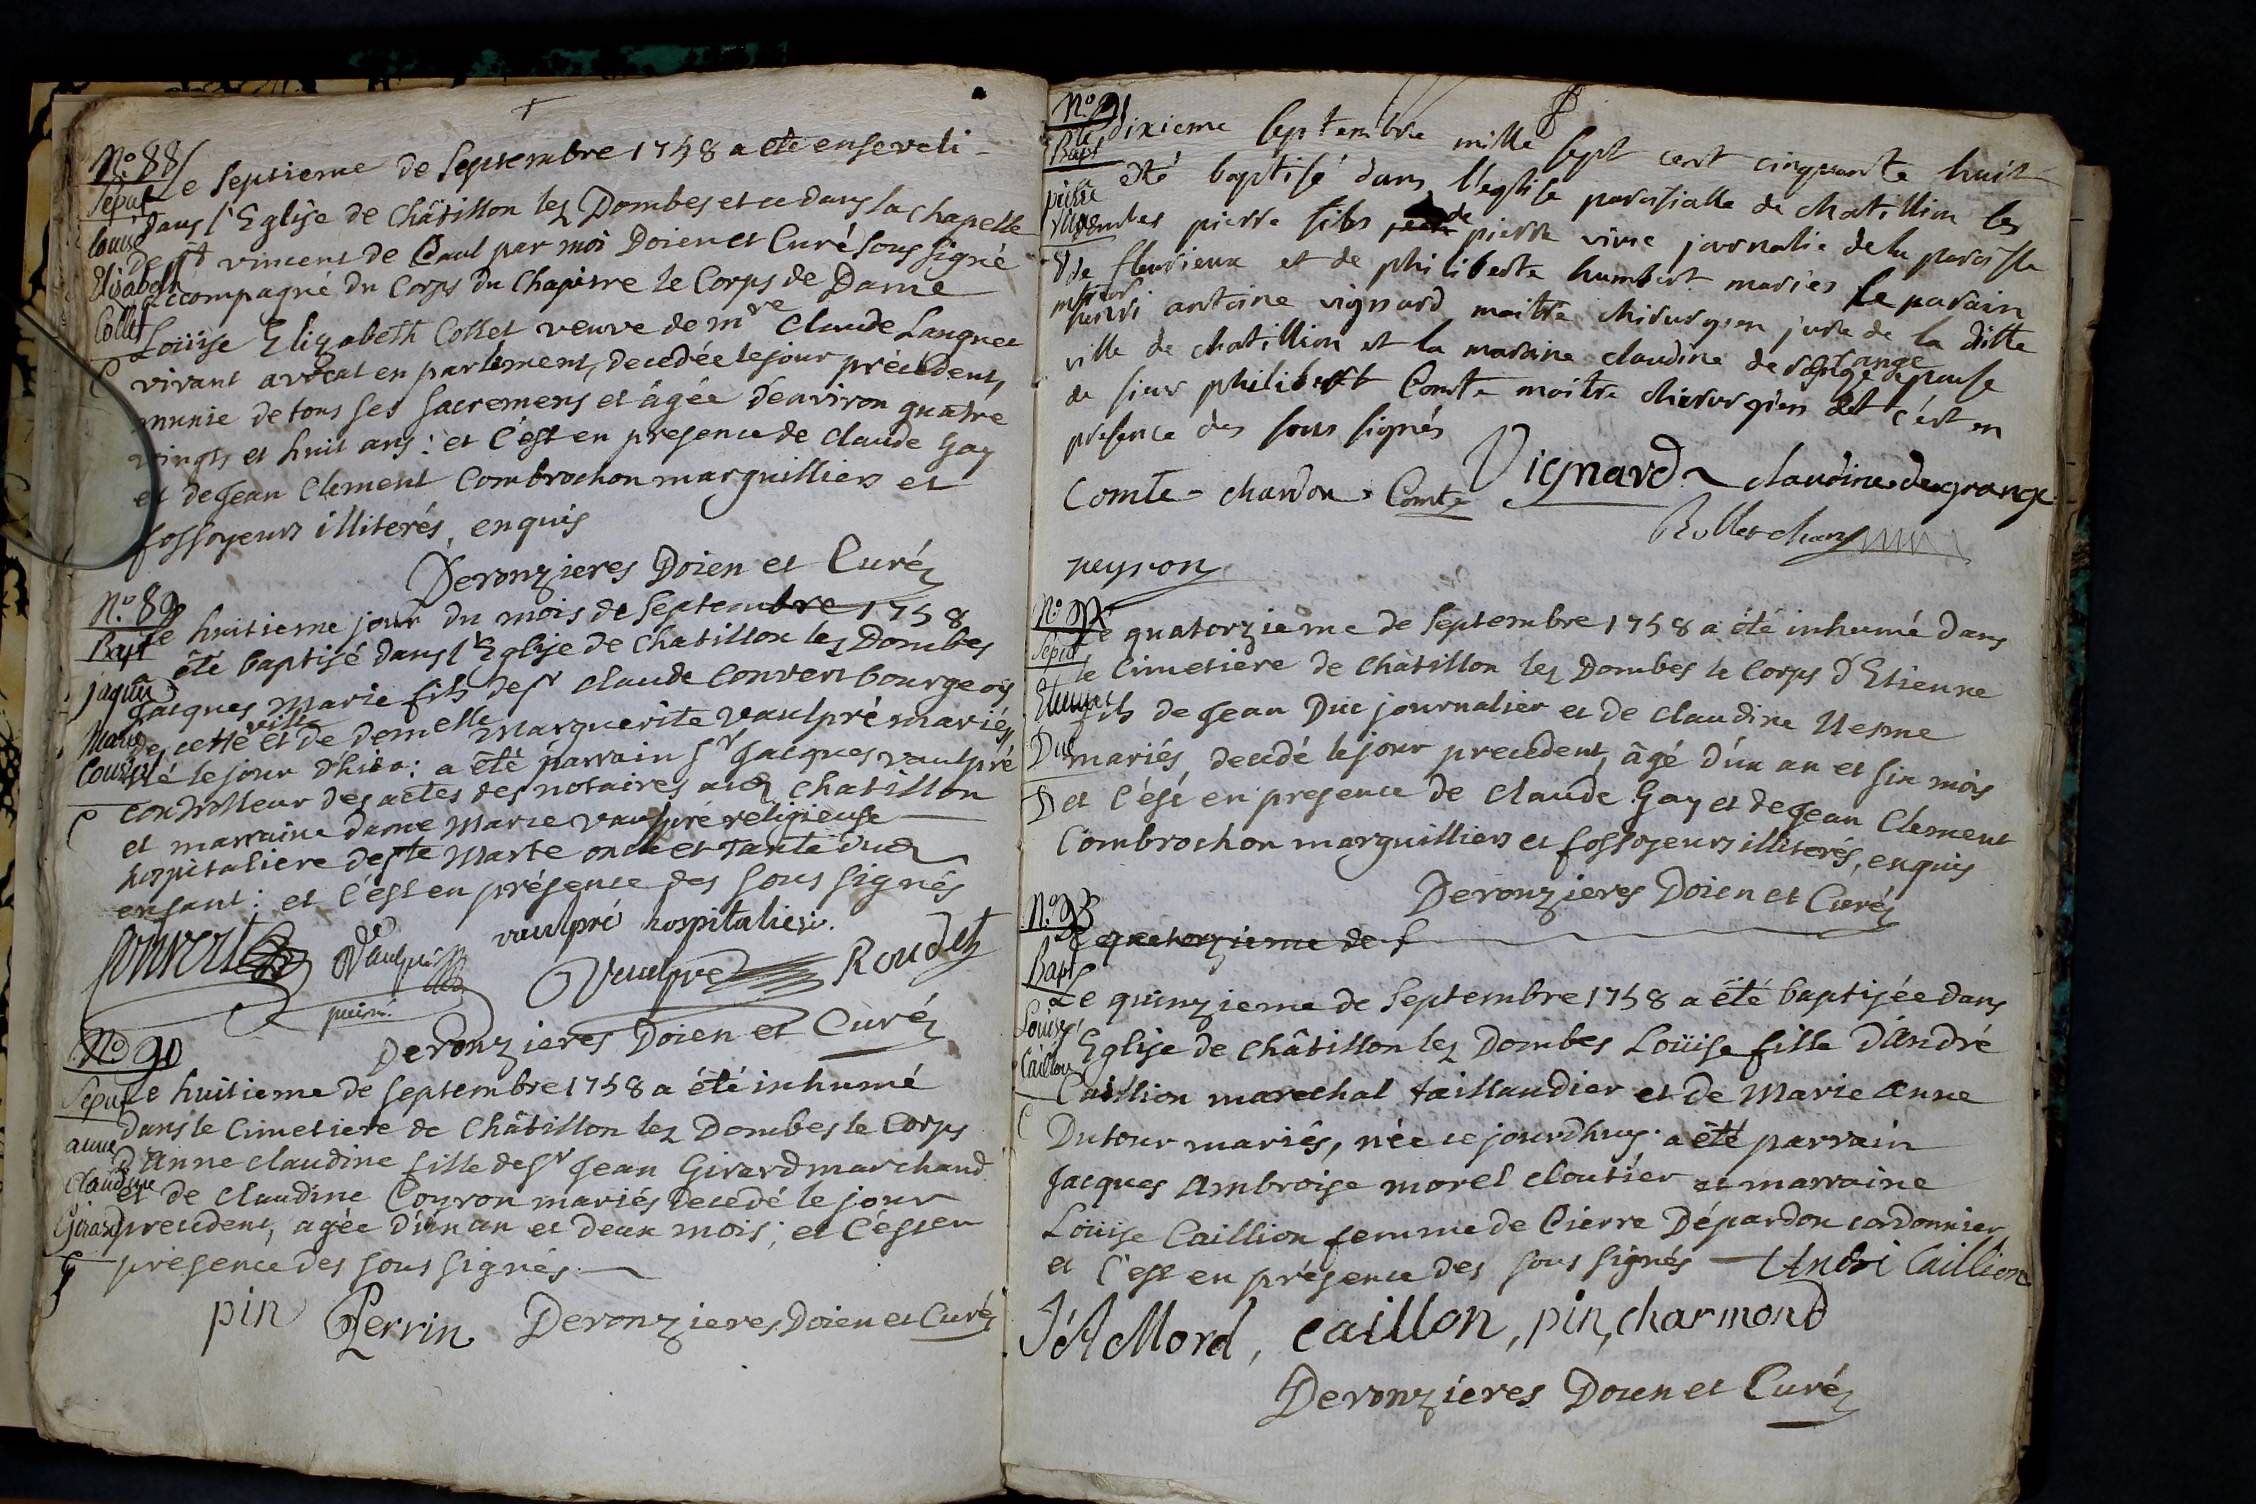 N.º 88
Sépul
Louise
Elisabeth
Collet
Le septieme de Septembre 1758 a eté enseveli
dans l'Eglise de Châtillon lez Dombes et ce dans la chapelle
de st vincent de Paul par moi Doien et Curé sous signé
accompagné du Corps du Chapitre le Corps de Dame
Loüise Elizabeth Collet veuve de mre Claude Languet
vivant avocat en parlement, decedée le jour précédent,
munie de tous ses sacremens et âgée d'environ quatre
vingts et huit ans : et c'est en presence de Claude Gay
et de Jean Clement Combrochon marguilliers et
fossoyeurs illiterés, enquis
Deronzieres Doien et Curé
N.º 89
Bapt
jaques
Marie
Convert
Le huitieme jour du mois de Septembre 1758
a été baptisé dans l'Eglise de Chatillon lez Dombes
Jacques Marie fils de sr Claude Convert bourgeois
de cette ville et de demelle Marguerite Vaulpré mariés,
né le jour d'hier : a été parrain sr Jacques Vaulpré
controlleur des actes des notaires aud chatillon
et marraine dame Marie Vaulpré religieuse
hospitaliere de ste Marte oncle et tante dud
enfant : et c'est en présence des sous signés
Convert Vaulpré vaulpré hospitaliere
puiné Vaulpré Roudet
Deronzieres Doien et Curé
Nº 90
Sepul
anne
Claudine
Girard
Le huitieme de Septembre 1758 a été inhumé
dans le Cimetiere de Châtillon lez Dombes le Corps
d'Anne Claudine fille de sr Jean Girard marchand
et de Claudine Coyron mariés decedé le jour
precedent, agée d'un an et deux mois ; et c'est en
présence des sous signés
pin Perrin Deronzieres Doien et Curé
Nº 91
Bapt
pierre
le dixieme septembre mille sept cent cinquante huit
a été baptisé dans l'eglise paroisialle de chatillion les
dombes pierre fils de pierre vivie journalie de la paroisse
de fleurieux et de philiberte humbert mariés le parain
henri antoine vignard maitre chirurgien jure de la ditte
ville de chatillion et la maraine claudine desgrange epouse
de sieur philibert Comte maitre chirurgien et c'est en
presence des sous signés
Comte chardon Comte Vignard claudine desgrange
Rollet
neyron
Nº 92
Sepul
Etienne
Duc
Le quatorzieme de Septembre 1758 a été inhumé dans
le Cimetiere de Châtillon lez Dombes le Corps d'Etienne
fils de Jean Duc journalier et de Claudine Nesme
mariés decedé le jour precedent, âgé d'un an et six mois
et c'est en presence de Claude Gay et de Jean Clement
Combrochon marguilliers et fossoyeurs illiterés, enquis
Deronzieres Doien et Curé
N.º 93
Bapt
Louise
Caillion
Le quatorzieme de s
Le quinzieme de Septembre 1758 a été baptisée dans
l'Eglise de Châtillon lez Dombes Loüise fille d'André
Caillion marechal taillaudier et de Marie Anne
Dutour mariés, née ce jourdhuy. a été parrain
Jacques Ambroise morel cloutier et marraine
Loüise Caillion femme de Pierre Dépardon cordonnier
et c'est en présence des sous signés André Caillion
J A Morel, caillon, pin, charmond
Deronzieres Doien et Curé